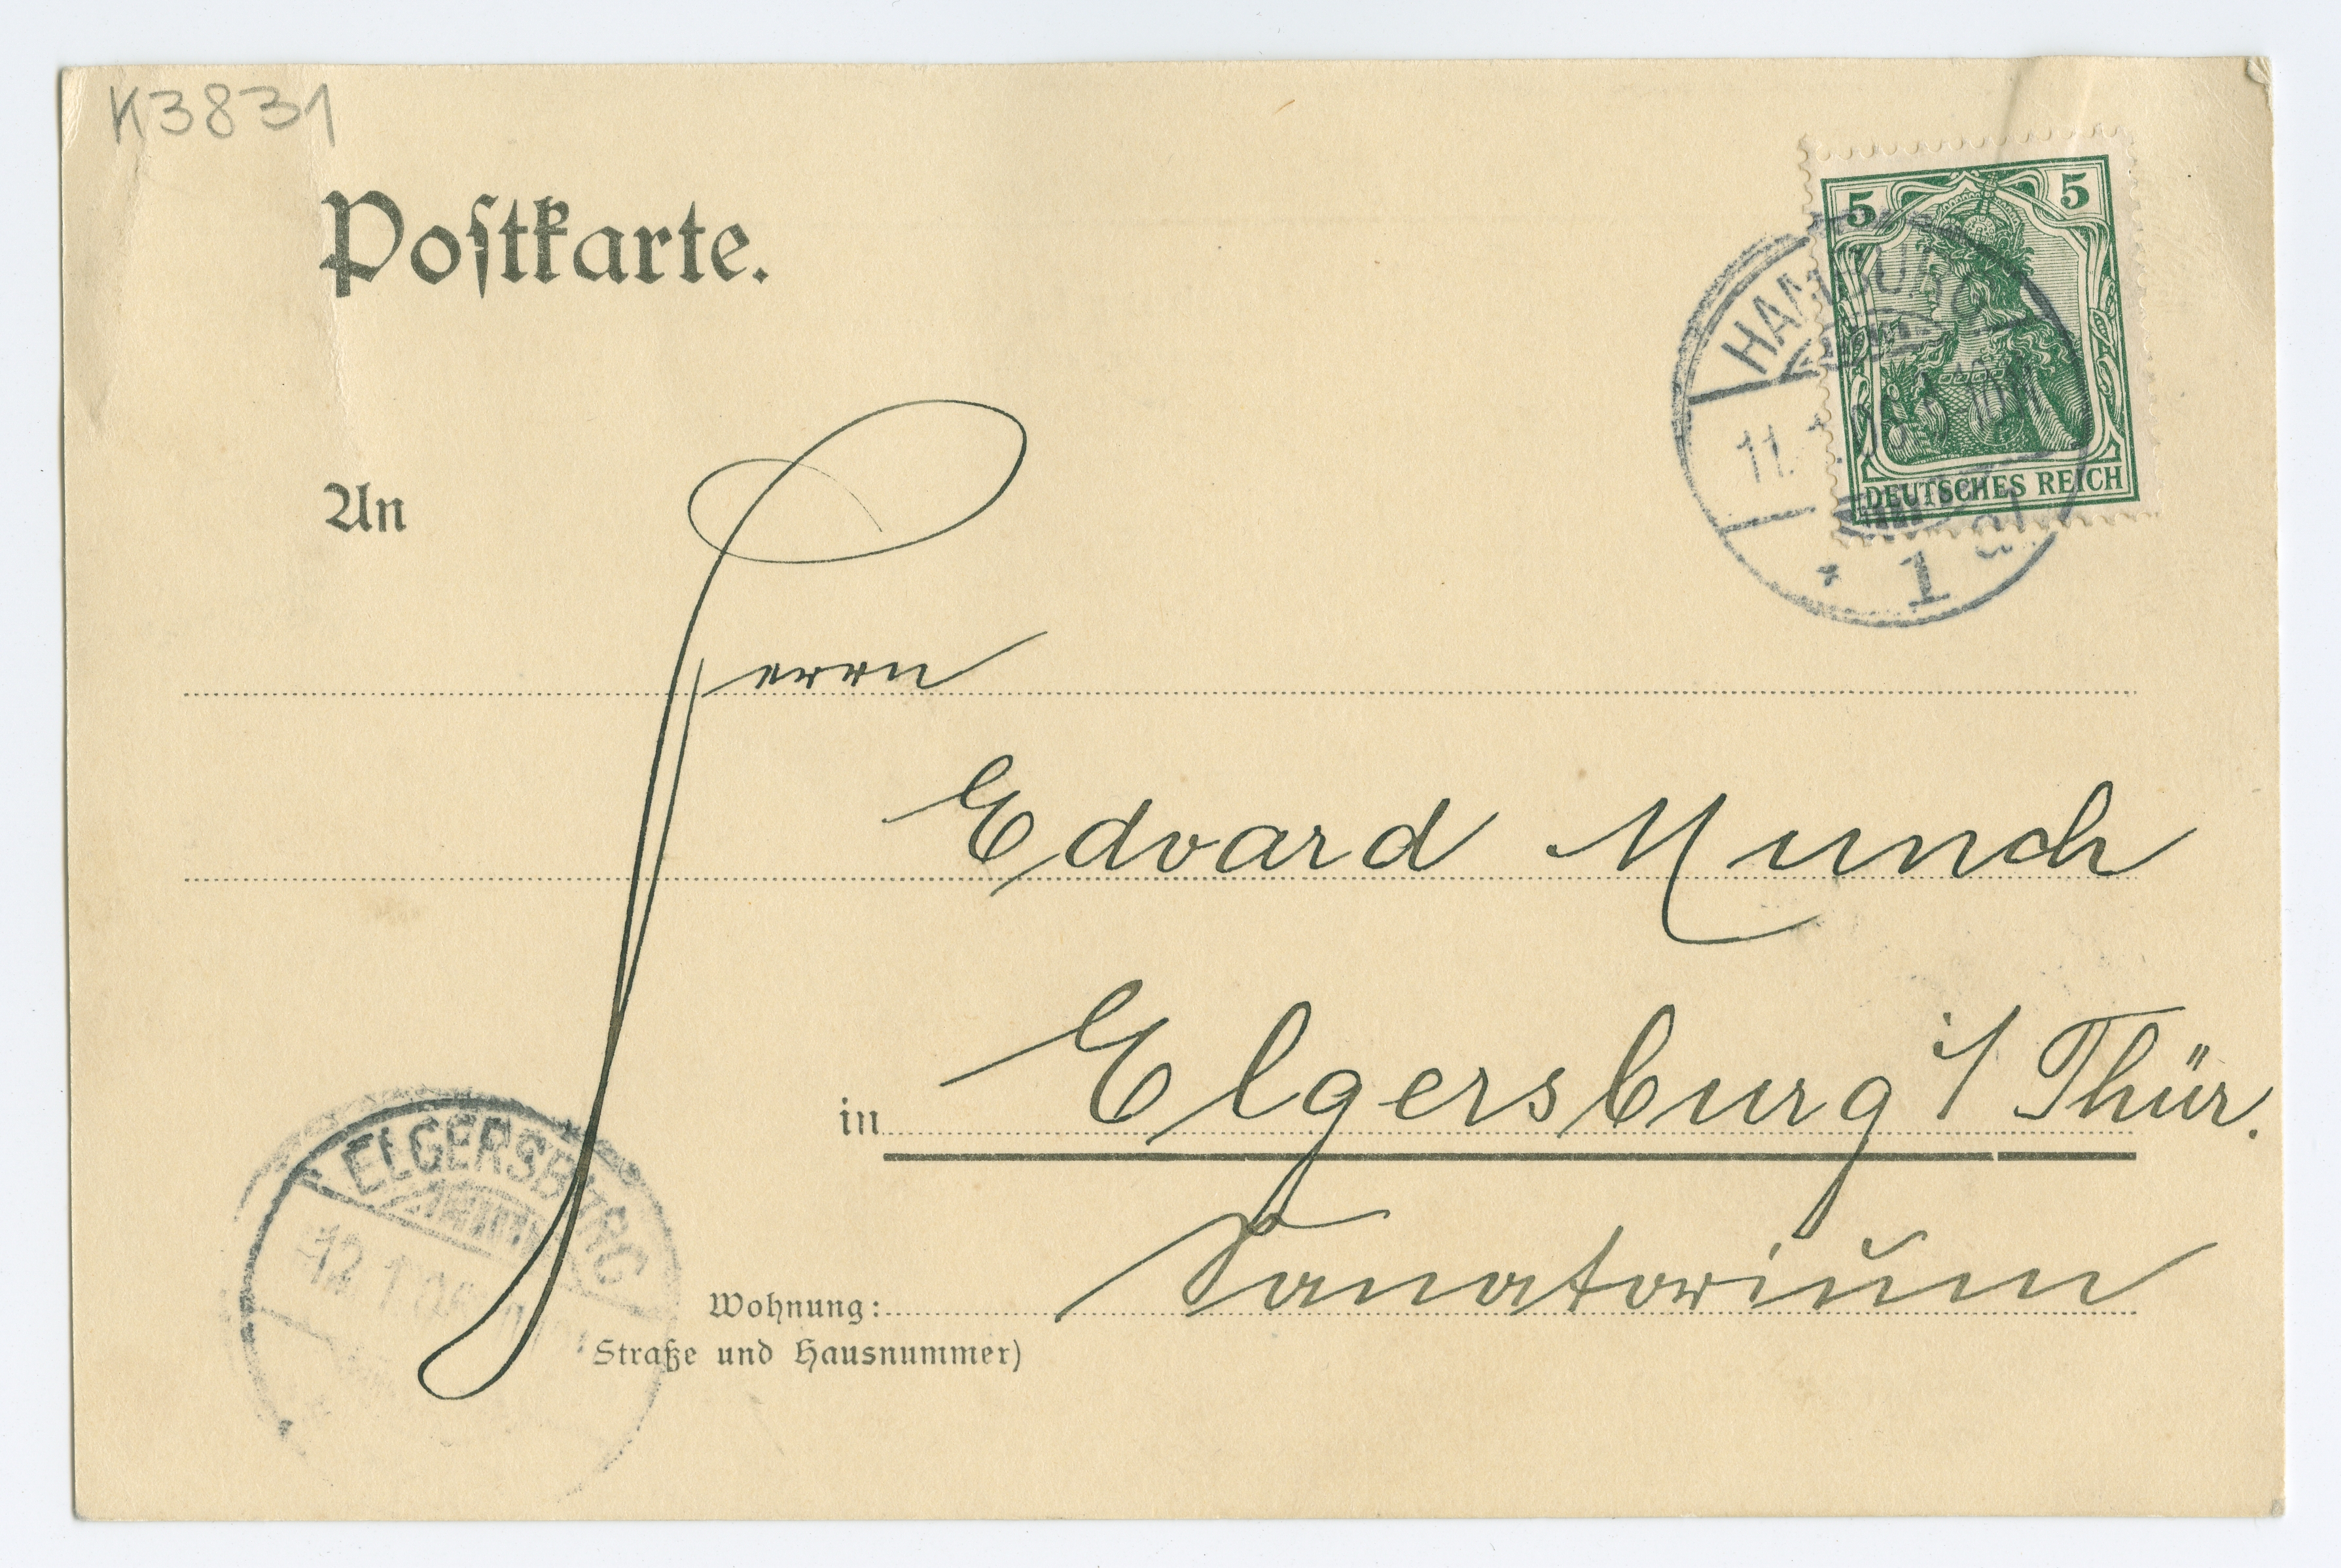 K3831
Postkarte.
5 5
HAMBURG
11.
DEUTSCHES REICH
* 1
An
Herrn
Edvard Munch
in Elgersburg i/ Thür.
ELGERSBURG
12 1
Wohnung: Sanatorium
Straße und Hausnummer)